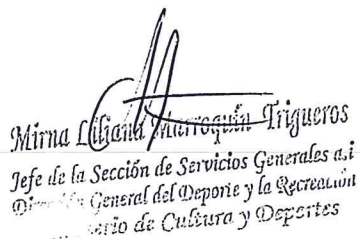 Mirna Liliana Marroquín Trigueros
Jefe de la Sección de Servicios Generales a.i
General del Deporte y la Recreación
de Cultura y Deportes